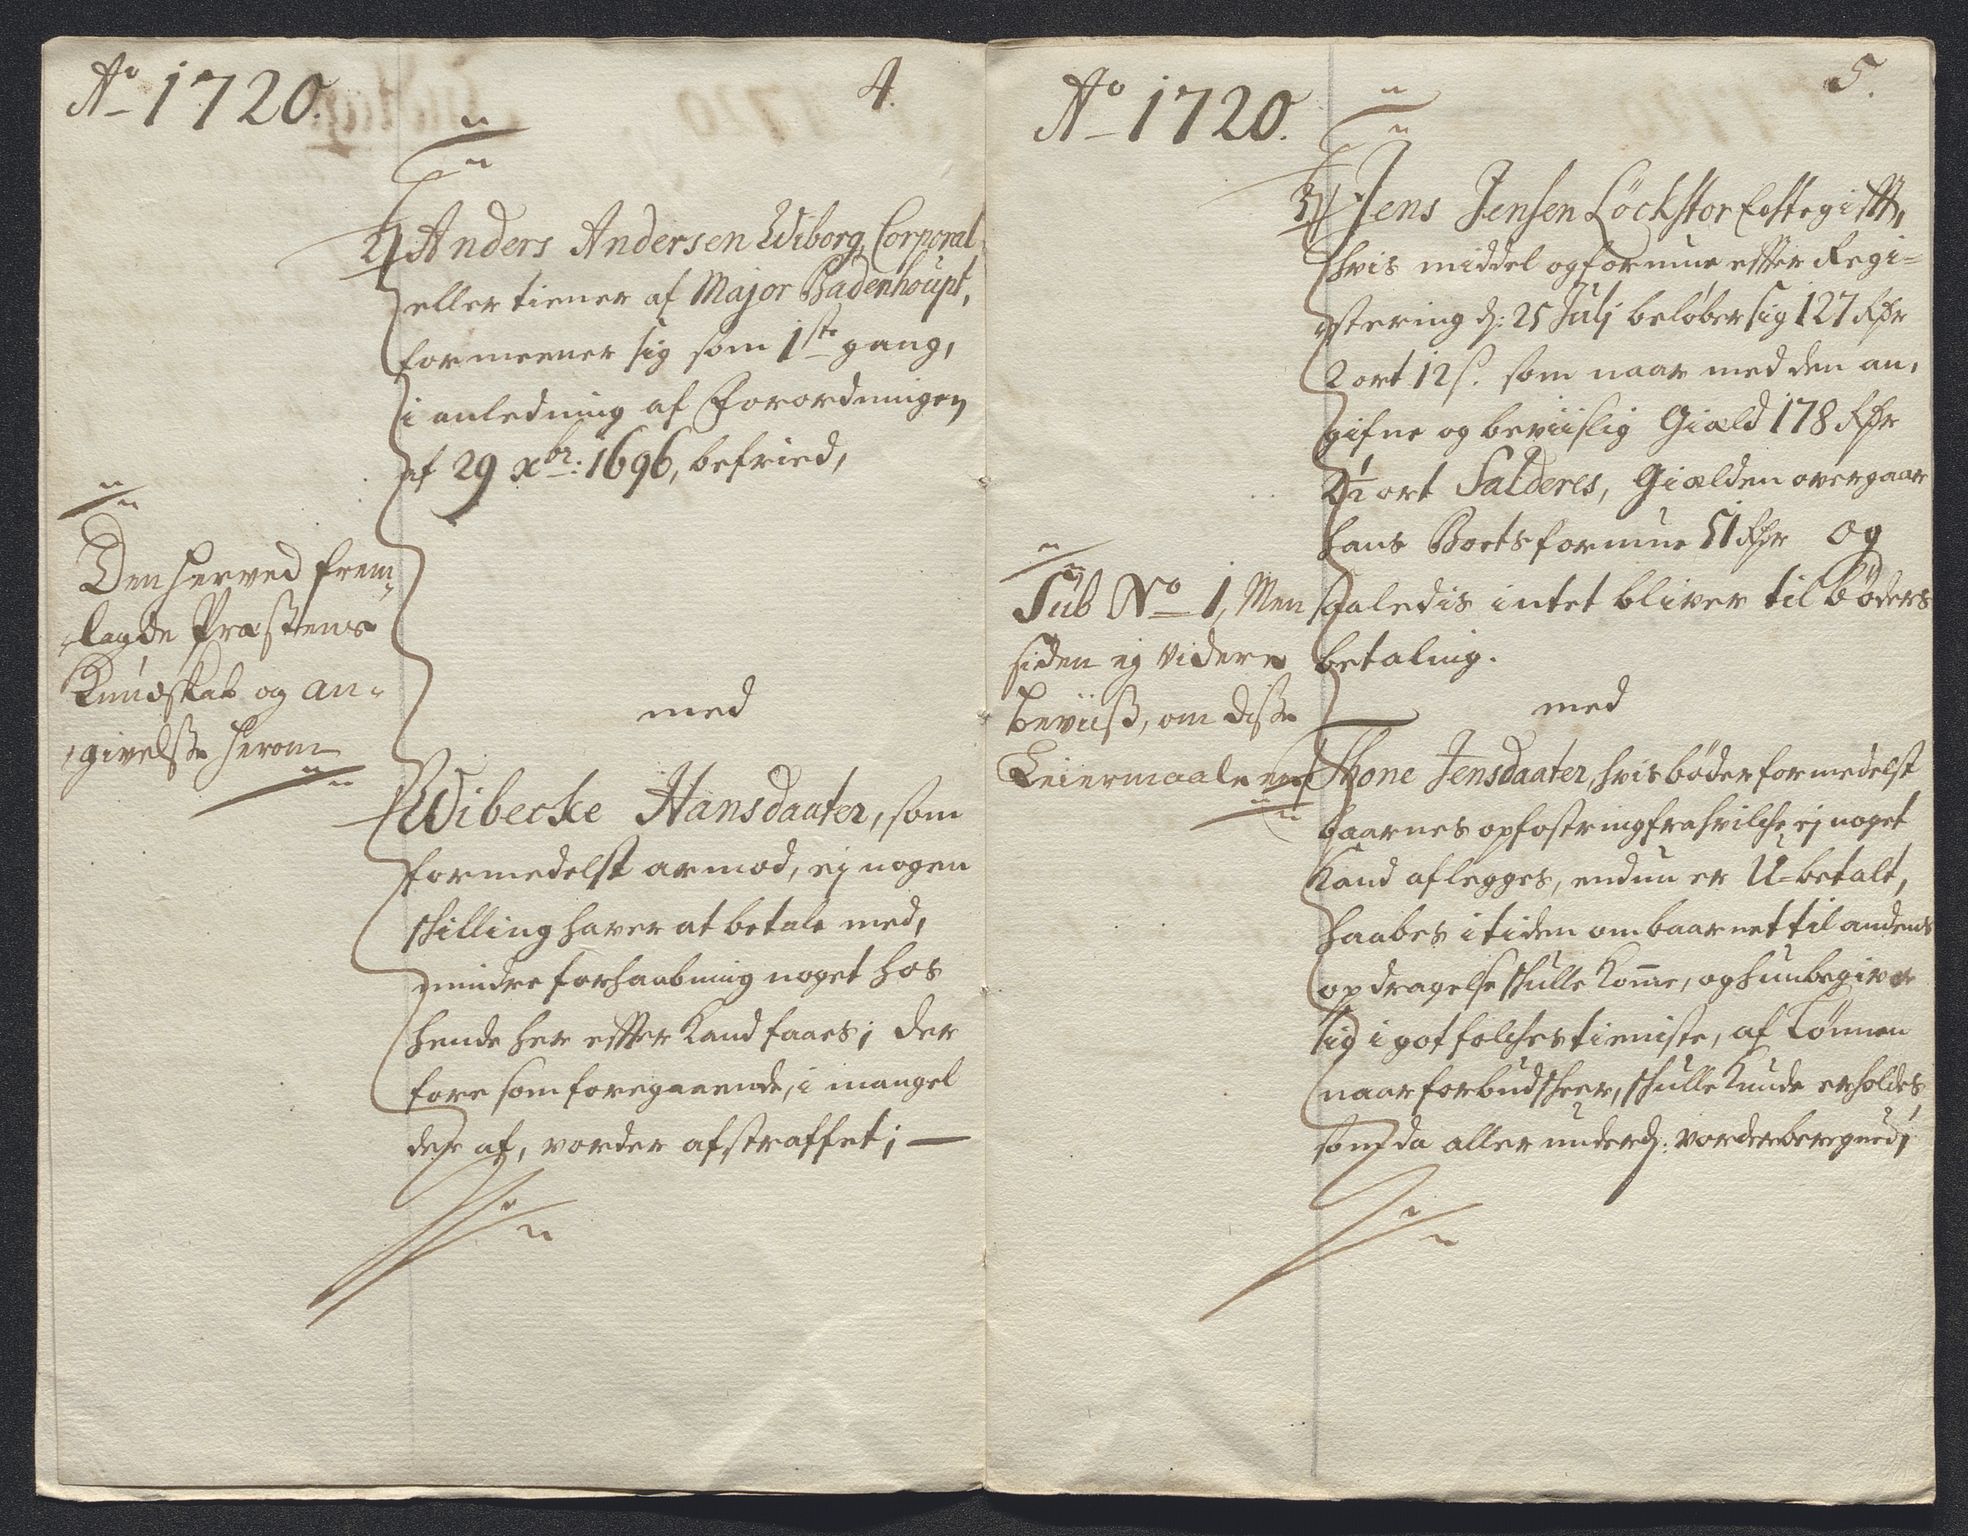 Aº 1720.
4.
2) Anders Andersen Wiborg, Corporal
eller tiener af Major Badenhoupt,
formeener sig som 1ste gang,
i anledning af Forordningen
af 29 xbr: 1696, befried,
Den herved frem¬
lagde Præstens
Kundskab og an¬
givelse herom
med
Wibecke Hansdaater, som
formedelst armod, ej nogen
skilling haver at betale med,
mindre forhaabning noget hos
hende her effter kand faaes; der
fore som foregaaende, i mangel
der af, vorder afstraffet; —
Aº 1720.
5.
3) Jens Jensen Löckstør Ectegifft,
hvis middel og formue effter Regi=
stering d: 25 Julj beløber sig 127 Rdr
2 ort 12 s. som naar med den an,
gifne og beviislig Giæld 178 Rdr
ort Salderes, Giælden overgaar
hans Boets formue 51 Rdr og
saaledis intet bliver til bøders
betaling.
Sub No 1, Men
siden ej videre
beviiss, om disse
Leiermaale
med
Thone Jensdaater, hvis bøder formedelst
baarnes opfostring fra hvilche ej noget
kand aflegges, endnu er U=betalt,
haabes i tiden om baarnet til andens
opdragelse skulle komme, og hun begiver
sig i got folches tieniste, af Lønnen
naar forbud skeer, skulle kunde erholdes
som da aller underd: vorder beregned;